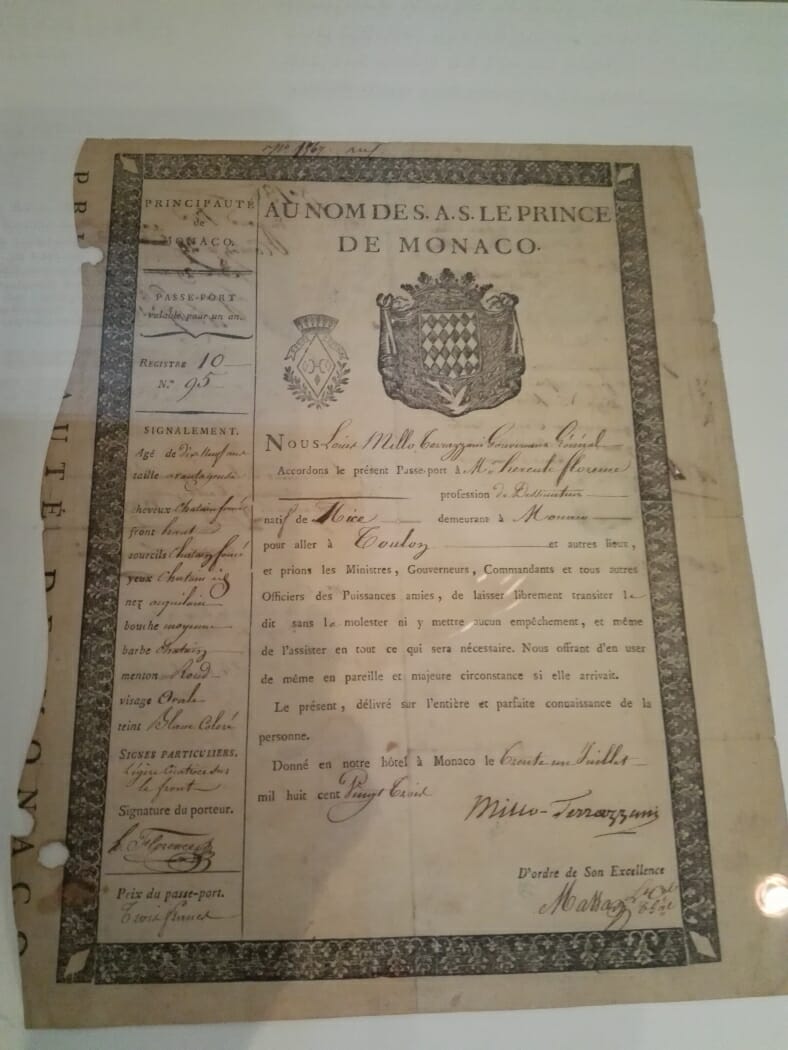 PRINCIPAUTÉ
de
MONACO.
PASSE-PORT
valable pour un an.
REGISTRE 10
N.º 95
SIGNALEMENT.
Agé de dix neuf ans
taille avantageuse
cheveux Chatain foncé
front haut
sourcils Chatain foncé
yeux Chatain
nez acquilain
bouche moyenne
barbe Chatain
menton Rond
visage Ovale
teint Blanc Coloré
SIGNES PARTICULIERS.
Légère Cicatrice sur
le front
Signature du porteur.
h. Florence
Prix du passe-port.
Trois francs
AU NOM DE S. A. S. LE PRINCE
DE MONACO.
NOUS Louis Millo Terrazzani Gouverneur Général
Accordons le présent Passe-port à Mr. hercule florence
profession de Dessinateur
natif de Nice demeurant à Monaco
pour aller à Toulon et autres lieux,
et prions les Ministres, Gouverneurs, Commandants et tous autres
Officiers des Puissances amies, de laisser librement transiter le
dit sans le molester ni y mettre aucun empêchement, et même
de l'assister en tout ce qui sera nécessaire. Nous offrant d'en user
de même en pareille et majeure circonstance si elle arrivait.
Le présent, délivré sur l'entière et parfaite connaissance de la
personne.
Donné en notre hôtel à Monaco le Trente un Juillet
mil huit cent Vingt Trois
Millo-Terrazzani
D'ordre de Son Excellence